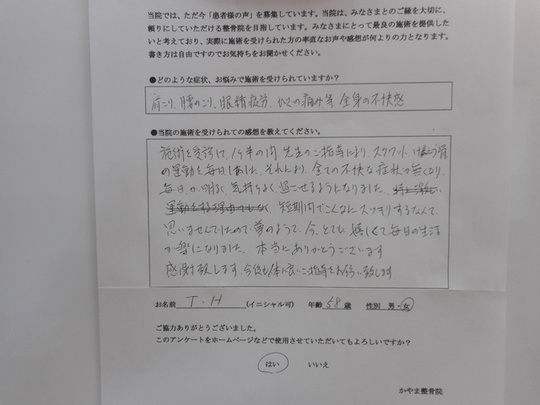 当院では、ただ今「患者様の声」を募集しています。当院は、みなさまとのご縁を大切に、
頼りにしていただける整骨院を目指しています。みなさまにとって最良の施術を提供した
いと考えており、実際に施術を受けられた方の率直なお声や感想が何よりの力となります。
書き方は自由ですのでお気持ちをお聞かせください。
●どのような症状、お悩みで施術を受けられていますか？
肩こり、腰のこり、眼精疲労、ひざの痛み等 全身の不快感
●当院の施術を受けられての感想を教えてください。
施術を受診け、1ヶ年の間 先生のご指導により、スクワット、骨
の運動を毎日しました。それにより、全ての不快な症状が無くなり、
毎日が明るく気持ちよく過ごせるようになりました。
短期間でこんなにスッキリするなんて
思いませんでしたので夢のようで、今、とても嬉しくて毎日の生活
が楽になりました。本当にありがとうございます
感謝致します。今後も体に良いご指導をお願い致します
お名前 T.H (イニシャル可) 年齢 58 歳 性別 男・女
ご協力ありがとうございました。
このアンケートをホームページなどで使用させていただいてもよろしいですか？
はい いいえ
かやま整骨院